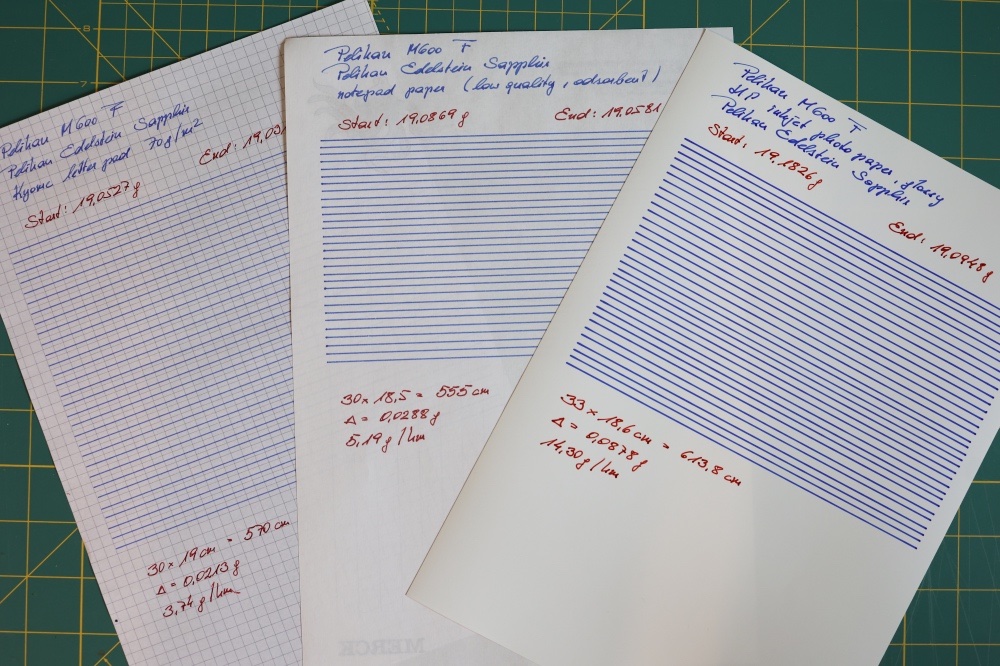 Pelikan M600 F
Pelikan Edelstein Sapphir
letter pad 70g/m2
Start: 19,0527g
End: 19,03
30 × 19 cm = 570 cm
Δ = 0,0213 g
3,74 g/km
Pelikan M600 F
Pelikan Edelstein Sapphir
notepad paper (low quality, adsorbent)
Start: 19,0869 g
End: 19,0581
30 × 18,5 = 555 cm
Δ = 0,0288 g
5,19 g/km
MERCK
Pelikan M600 F
HP inkjet photo paper, glossy
Pelikan Edelstein Sapphir
Start: 19,1826g
End: 19,0948 g
33 × 18,6 cm = 613,8 cm
Δ = 0,0878 g
14,30 g/km